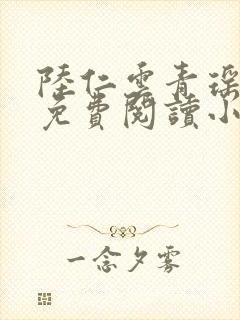 陸仁雲青瑶
免費閱讀小
一念夕霧